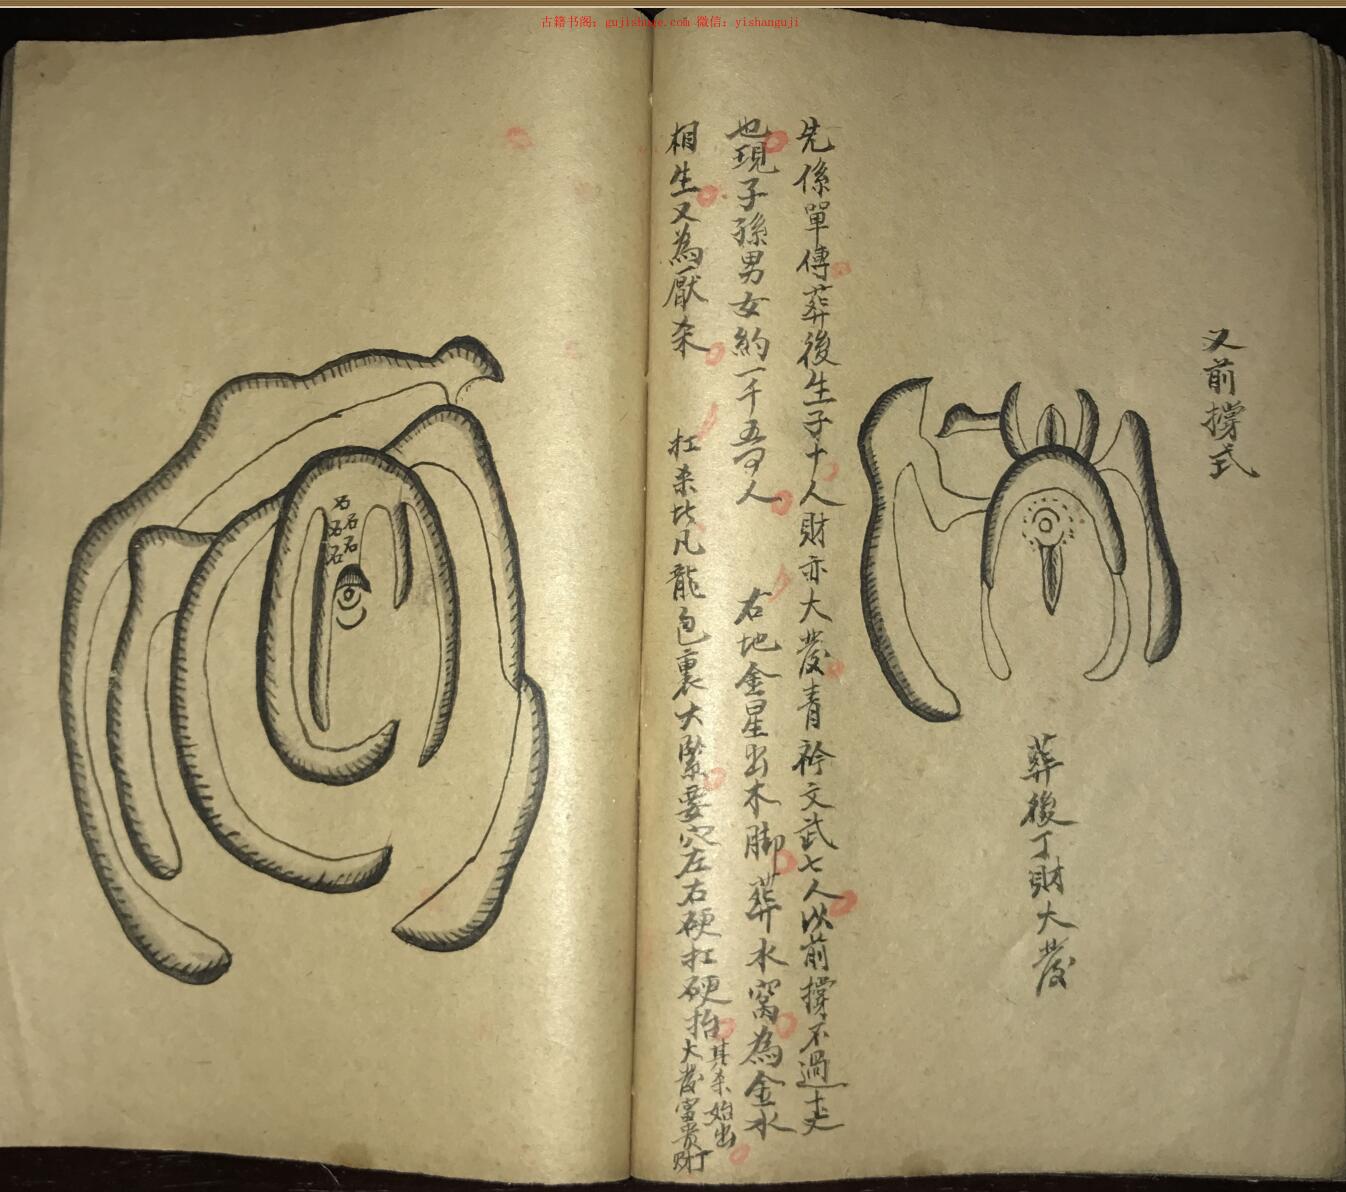 古籍书阁：gujishuge.com 微信：yishanguji
又前撐式
葬後丁財大發
先係單傳葬後生子十人財亦大發青衿文武七人以前撐不過十丈
也現子孫男女約一千五百人 右地金星出木脚葬水窩為金水
相生又為厭杀 扛杀坟凡龍包裹大緊要穴左右硬扛硬抬
其杀始出
大發富貴丁財
石
石
石
石
石